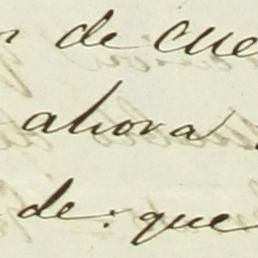 de cue
ahora
de que